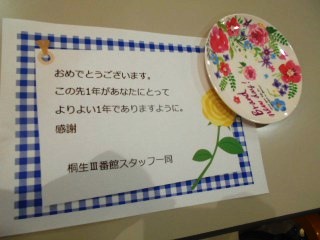 おめでとうございます。
この先1年があなたにとって
よりよい1年でありますように。
感謝
桐生Ⅲ番館スタッフ一同